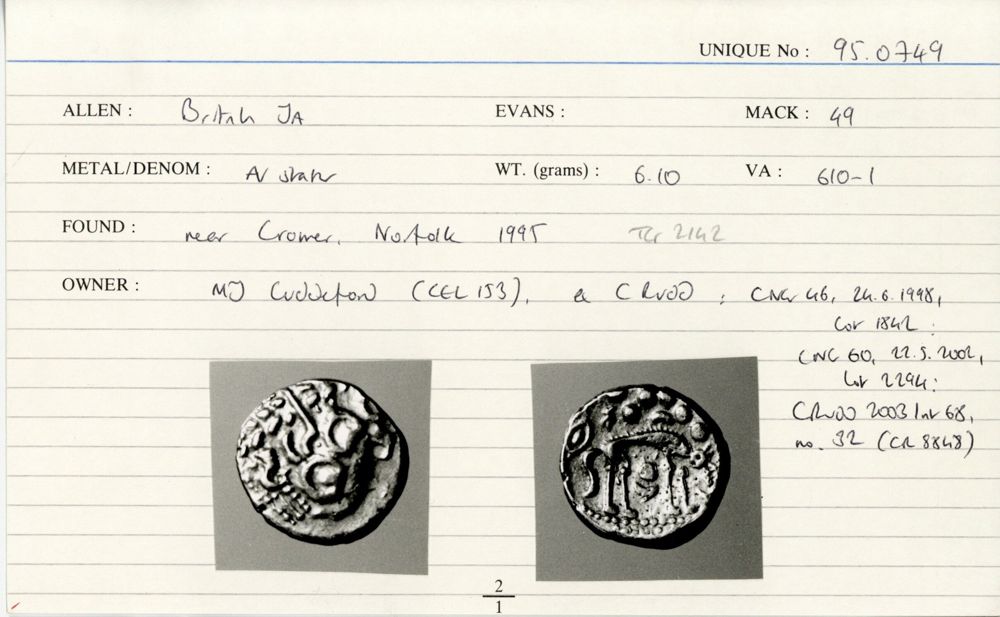 UNIQUE No : 95.0749
ALLEN : British JA EVANS : MACK : 49
METAL/DENOM : AV stater WT. (grams) : 6.10 VA : 610-1
FOUND : near Cromer, Norfolk 1995 TCr 2142
OWNER : MJ Cuddeford (CEL 153), ex C Rudd ; CNG 46, 24.6.1998,
Lot 1842 :
CNG 60, 22.5.2002,
Lot 2294 :
CRudd 2003 list 68,
no. 32 (CR 8848)
2
1